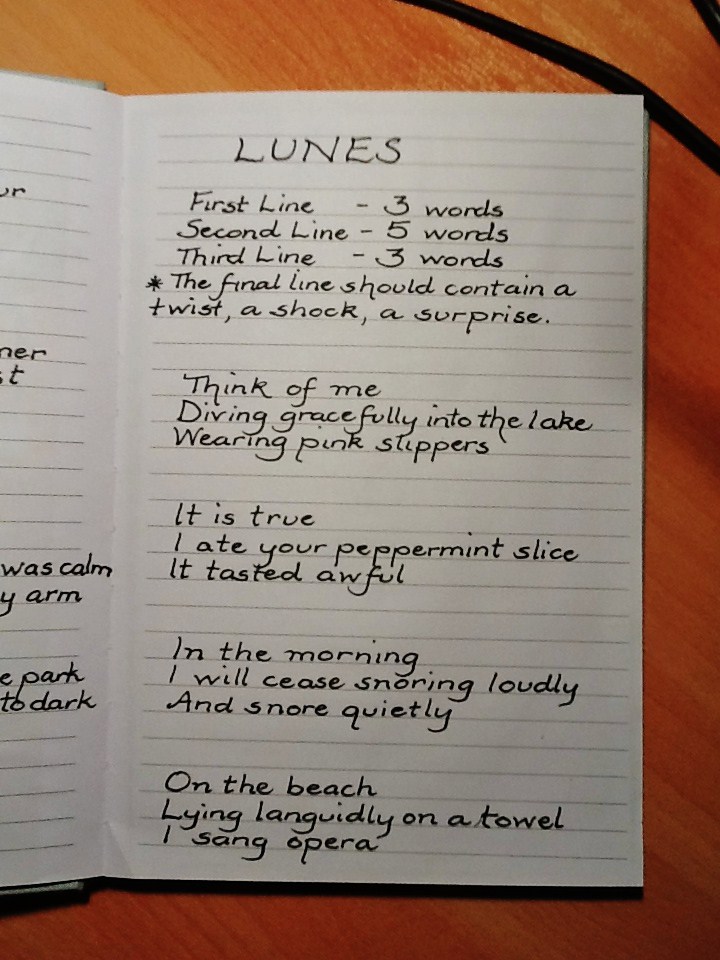 was calm
arm
park
to dark
LUNES
First Line - 3 words
Second Line - 5 words
Third Line - 3 words
* The final line should contain a
twist, a shock, a surprise.
Think of me
Diving gracefully into the lake
Wearing pink slippers
It is true
I ate your peppermint slice
It tasted awful
In the morning
I will cease snoring loudly
And snore quietly
On the beach
Lying languidly on a towel
I sang opera